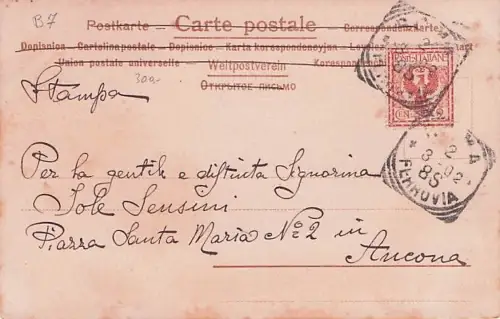 B7
Postkarte — Carte postale — Correspondenzkarte
Dopisnica — Cartolina postale — Dopisnice — Karta korespondencyjna — Lev
Union postale universelle — Weltpostverein — Korespon
300.-
ОТКРЫТОЕ ПИСЬМО
Stampa
POSTE ITALIANE
CEN. DUE
Per la gentile e distinta Signorina
Iole Sensini
Piazza Santa Maria No 2 in
Ancona
A
* 2
3 02
8S
FERROVIA